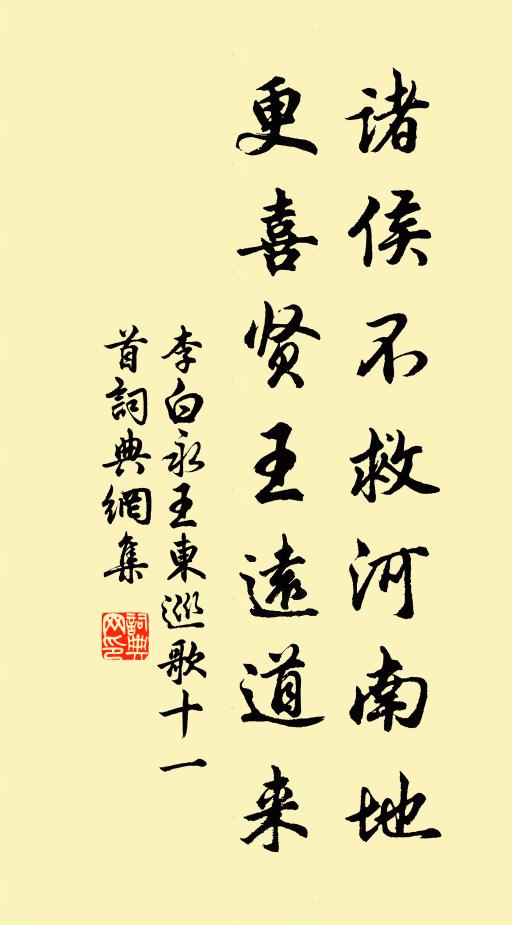 诸侯不救河南地
更喜贤王遠道来
李白永王東巡歌十一
首詞典網集
詞典
网印